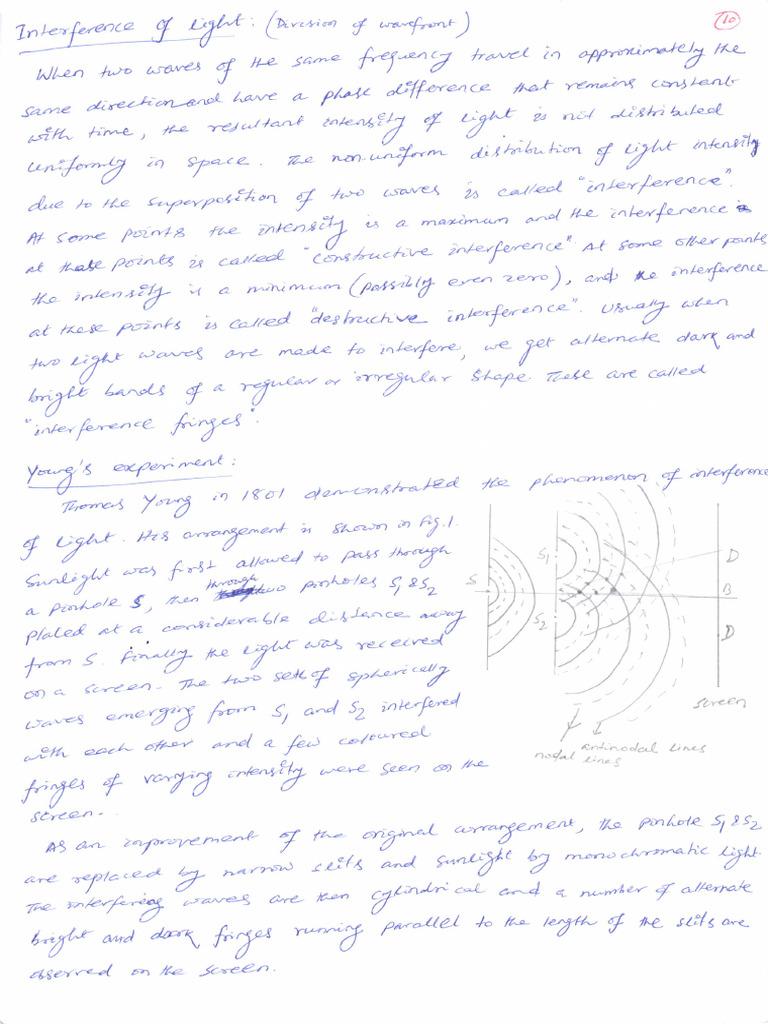 Interference of light : (Division of wavefront)
10
When two waves of the same frequency travel in approximately the
same direction and have a phase difference that remains constant
with time, the resultant intensity of light is not distributed
uniformly in space. The non-uniform distribution of light intensity
due to the superposition of two waves is called "interference".
At some points the intensity is a maximum and the interference is
at these points is called "constructive interference". At some other points
the intensity is a minimum (possibly even zero), and the interference
at these points is called "destructive interference". Usually when
two light waves are made to interfere, we get alternate dark and
bright bands of a regular or irregular shape. These are called
"interference fringes".
Young's experiment :
Thomas Young in 1801 demonstrated the phenomenon of interference
of light. His arrangement is shown in Fig.1.
Sunlight was first allowed to pass through
a pinhole S, then through two pinholes S1 & S2
plated at a considerable distance away
from S. Finally the light was received
on a screen. The two sets of spherically
waves emerging from S1 and S2 interfered
with each other and a few coloured
fringes of varying intensity were seen on the
screen.
S
S1
S2
D
B
D
screen
antinodal lines
nodal
lines
As an improvement of the original arrangement, the pinhole S1 & S2
are replaced by narrow slits and sunlight by monochromatic light.
The interfering waves are then cylindrical and a number of alternate
bright and dark fringes running parallel to the length of the slits are
observed on the screen.